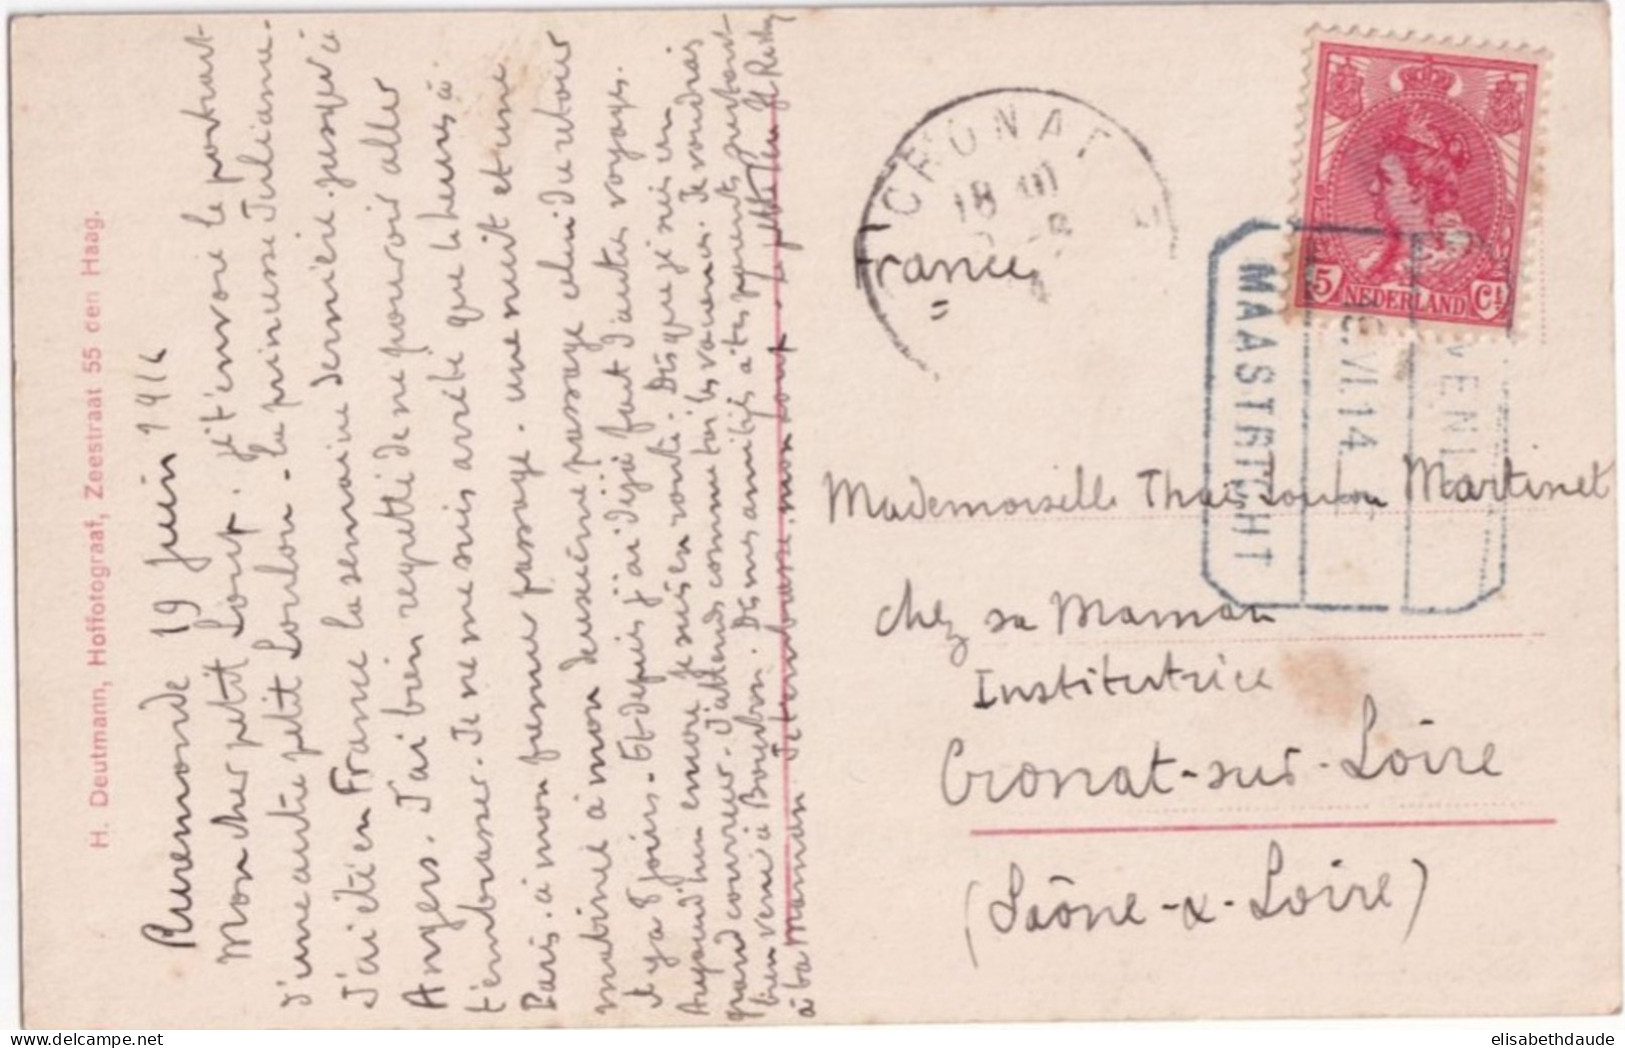 H. Deutmann, Hoffotograaf, Zeestraat 55 den Haag.
Ruremonde 19 Juin 1914
Mon cher petit Loup. Je t'envoie le portrait
d'une autre petit Loulou - la princesse Juliana.
J'ai été en France la semaine dernière jusqu'à
Angers. J'ai bien regretté de ne pouvoir aller
t'embrasser. Je ne me suis arrêté que heures à
Paris. à mon premier passage. une nuit et une
matinée à mon deuxième passage celui du retour
il y a 8 jours. Et depuis j'ai déjà fait d'autres voyages.
Aujourd'hui encore je suis en route. Dès que je suis en
grand courrier. J'attends comme toi les vacances. Je voudrais
bien venir à Bourbon. Dis mes amitiés à tes parents
à ta Maman Je t'embrasse, mon Loup.
CRONAT
18
France
NEDERLAND
5 Ct
MAASTRICHT
VI.14
VENL
Mademoiselle Martinet
chez sa Maman
Institutrice
Cronat-sur-Loire
(Saône-&-Loire)
delcampe.net
elisabethdaude